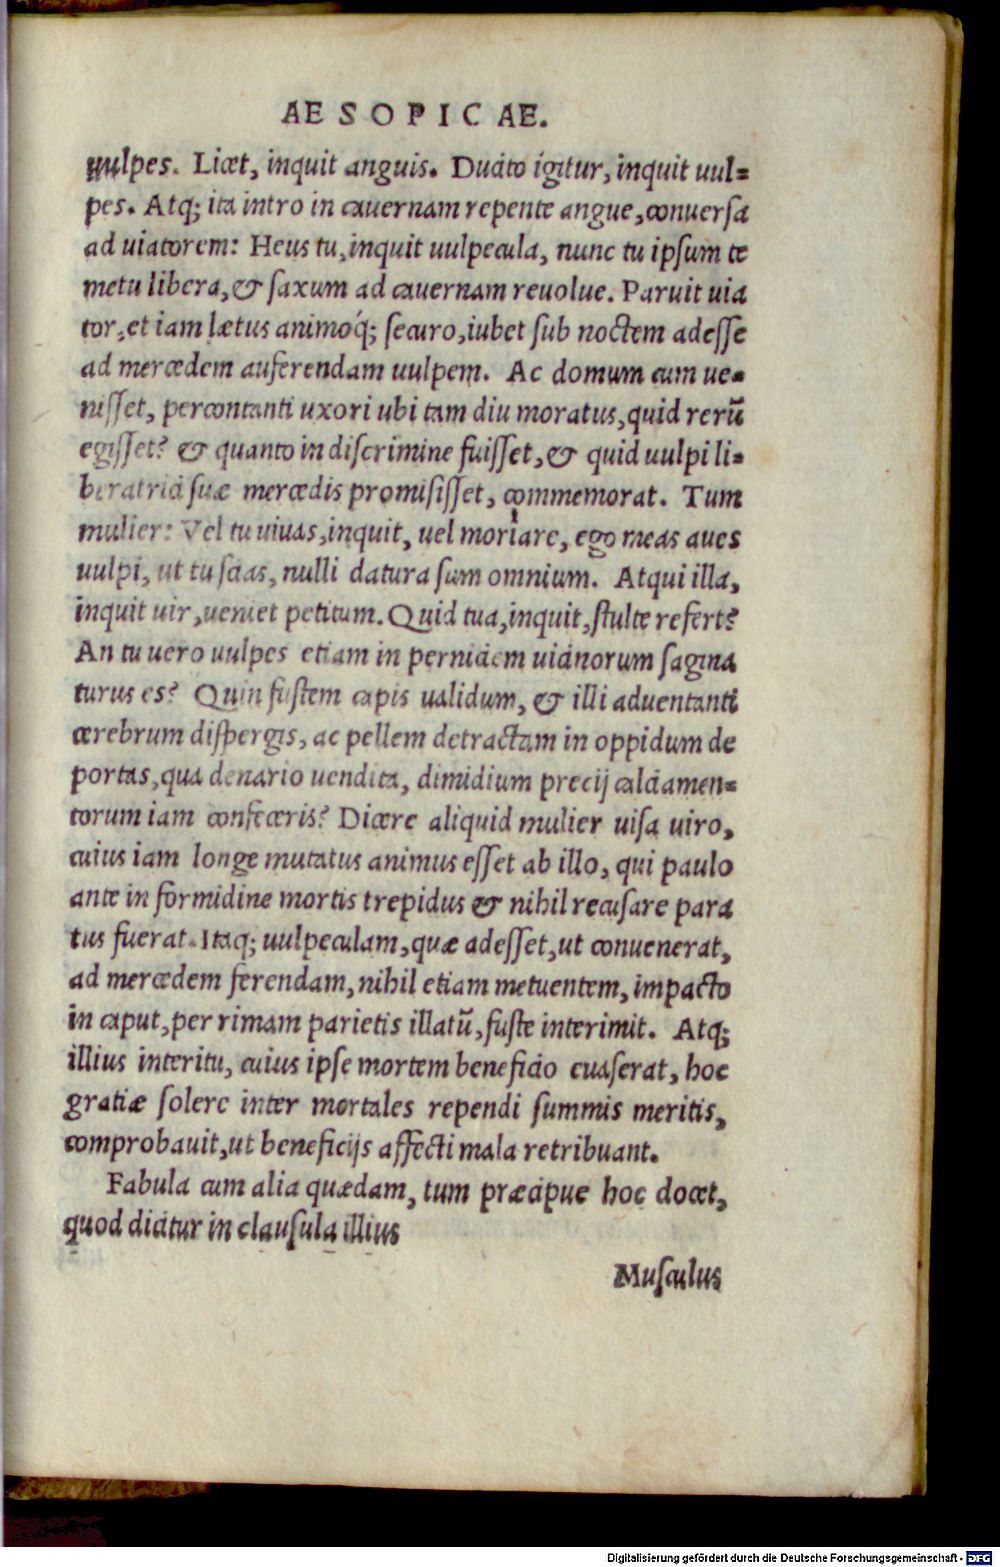 AESOPICAE.
uulpes. Licet, inquit anguis. Ducito igitur, inquit uul-
pes. Atq; ita intro in cauernam repente angue, conuersa
ad uiatorem: Heus tu, inquit uulpecula, nunc tu ipsum te
metu libera, & saxum ad cauernam reuolue. Paruit uia
tor, et iam lætus animoq́; securo, iubet sub noctem adesse
ad mercedem auferendam uulpem. Ac domum cum ue-
nisset, percontanti uxori ubi tam diu moratus, quid rerū
egisset? & quanto in discrimine fuisset, & quid uulpi li-
beratrici suæ mercedis promisisset, commemorat. Tum
mulier: Vel tu uiuas, inquit, uel moriare, ego meas aues
uulpi, ut tu scias, nulli datura sum omnium. Atqui illa,
inquit uir, ueniet petitum. Quid tua, inquit, stulte refert?
An tu uero uulpes etiam in perniciem uicinorum sagina
turus es? Quin fustem capis ualidum, & illi aduentanti
cerebrum dispergis, ac pellem detractam in oppidum de
portas, qua denario uendita, dimidium precij calciamen-
torum iam confeceris? Dicere aliquid mulier uisa uiro,
cuius iam longe mutatus animus esset ab illo, qui paulo
ante in formidine mortis trepidus & nihil recusare para
tus fuerat. Itaq; uulpeculam, quæ adesset, ut conuenerat,
ad mercedem ferendam, nihil etiam metuentem, impacto
in caput, per rimam parietis illatū, fuste interimit. Atq;
illius interitu, cuius ipse mortem beneficio euaserat, hoc
gratiæ solere inter mortales rependi summis meritis,
comprobauit, ut beneficijs affecti mala retribuant.
Fabula cum alia quædam, tum præcipue hoc docet,
quod dicitur in clausula illius
Musculus
Digitalisierung gefördert durch die Deutsche Forschungsgemeinschaft - DFG